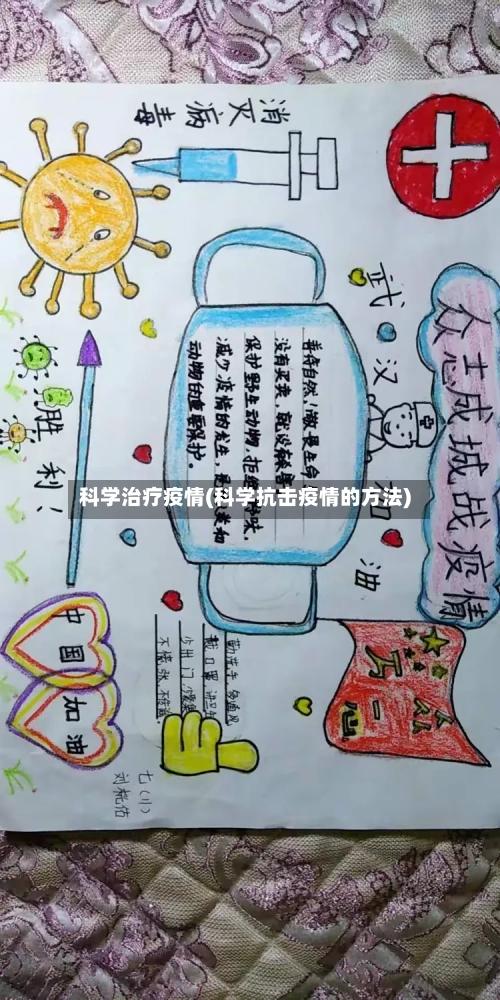 众志成城战疫情
武汉加油
消灭病毒
善待自然,敬畏生命
没有买卖,就没有
保护野生动物,拒绝
减少疫情的发生,是
动物的重要保护。
胜利!
科学治疗疫情(科学抗击疫情的方法)
众人
万一心
勤洗手 多通风
戴口罩 讲卫生
少出门 少聚集
不惊慌
中国
加油
七(小)
刘桄佑